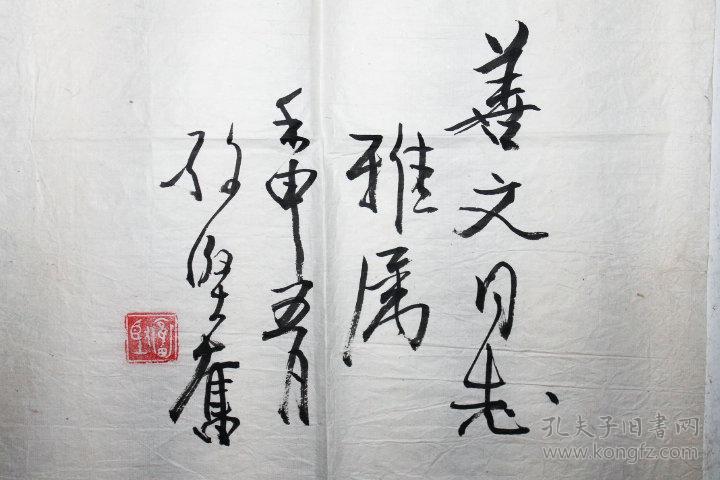 善文同志
雅属
壬申五月
段坚奋
孔夫子旧书网
www.kongfz.com